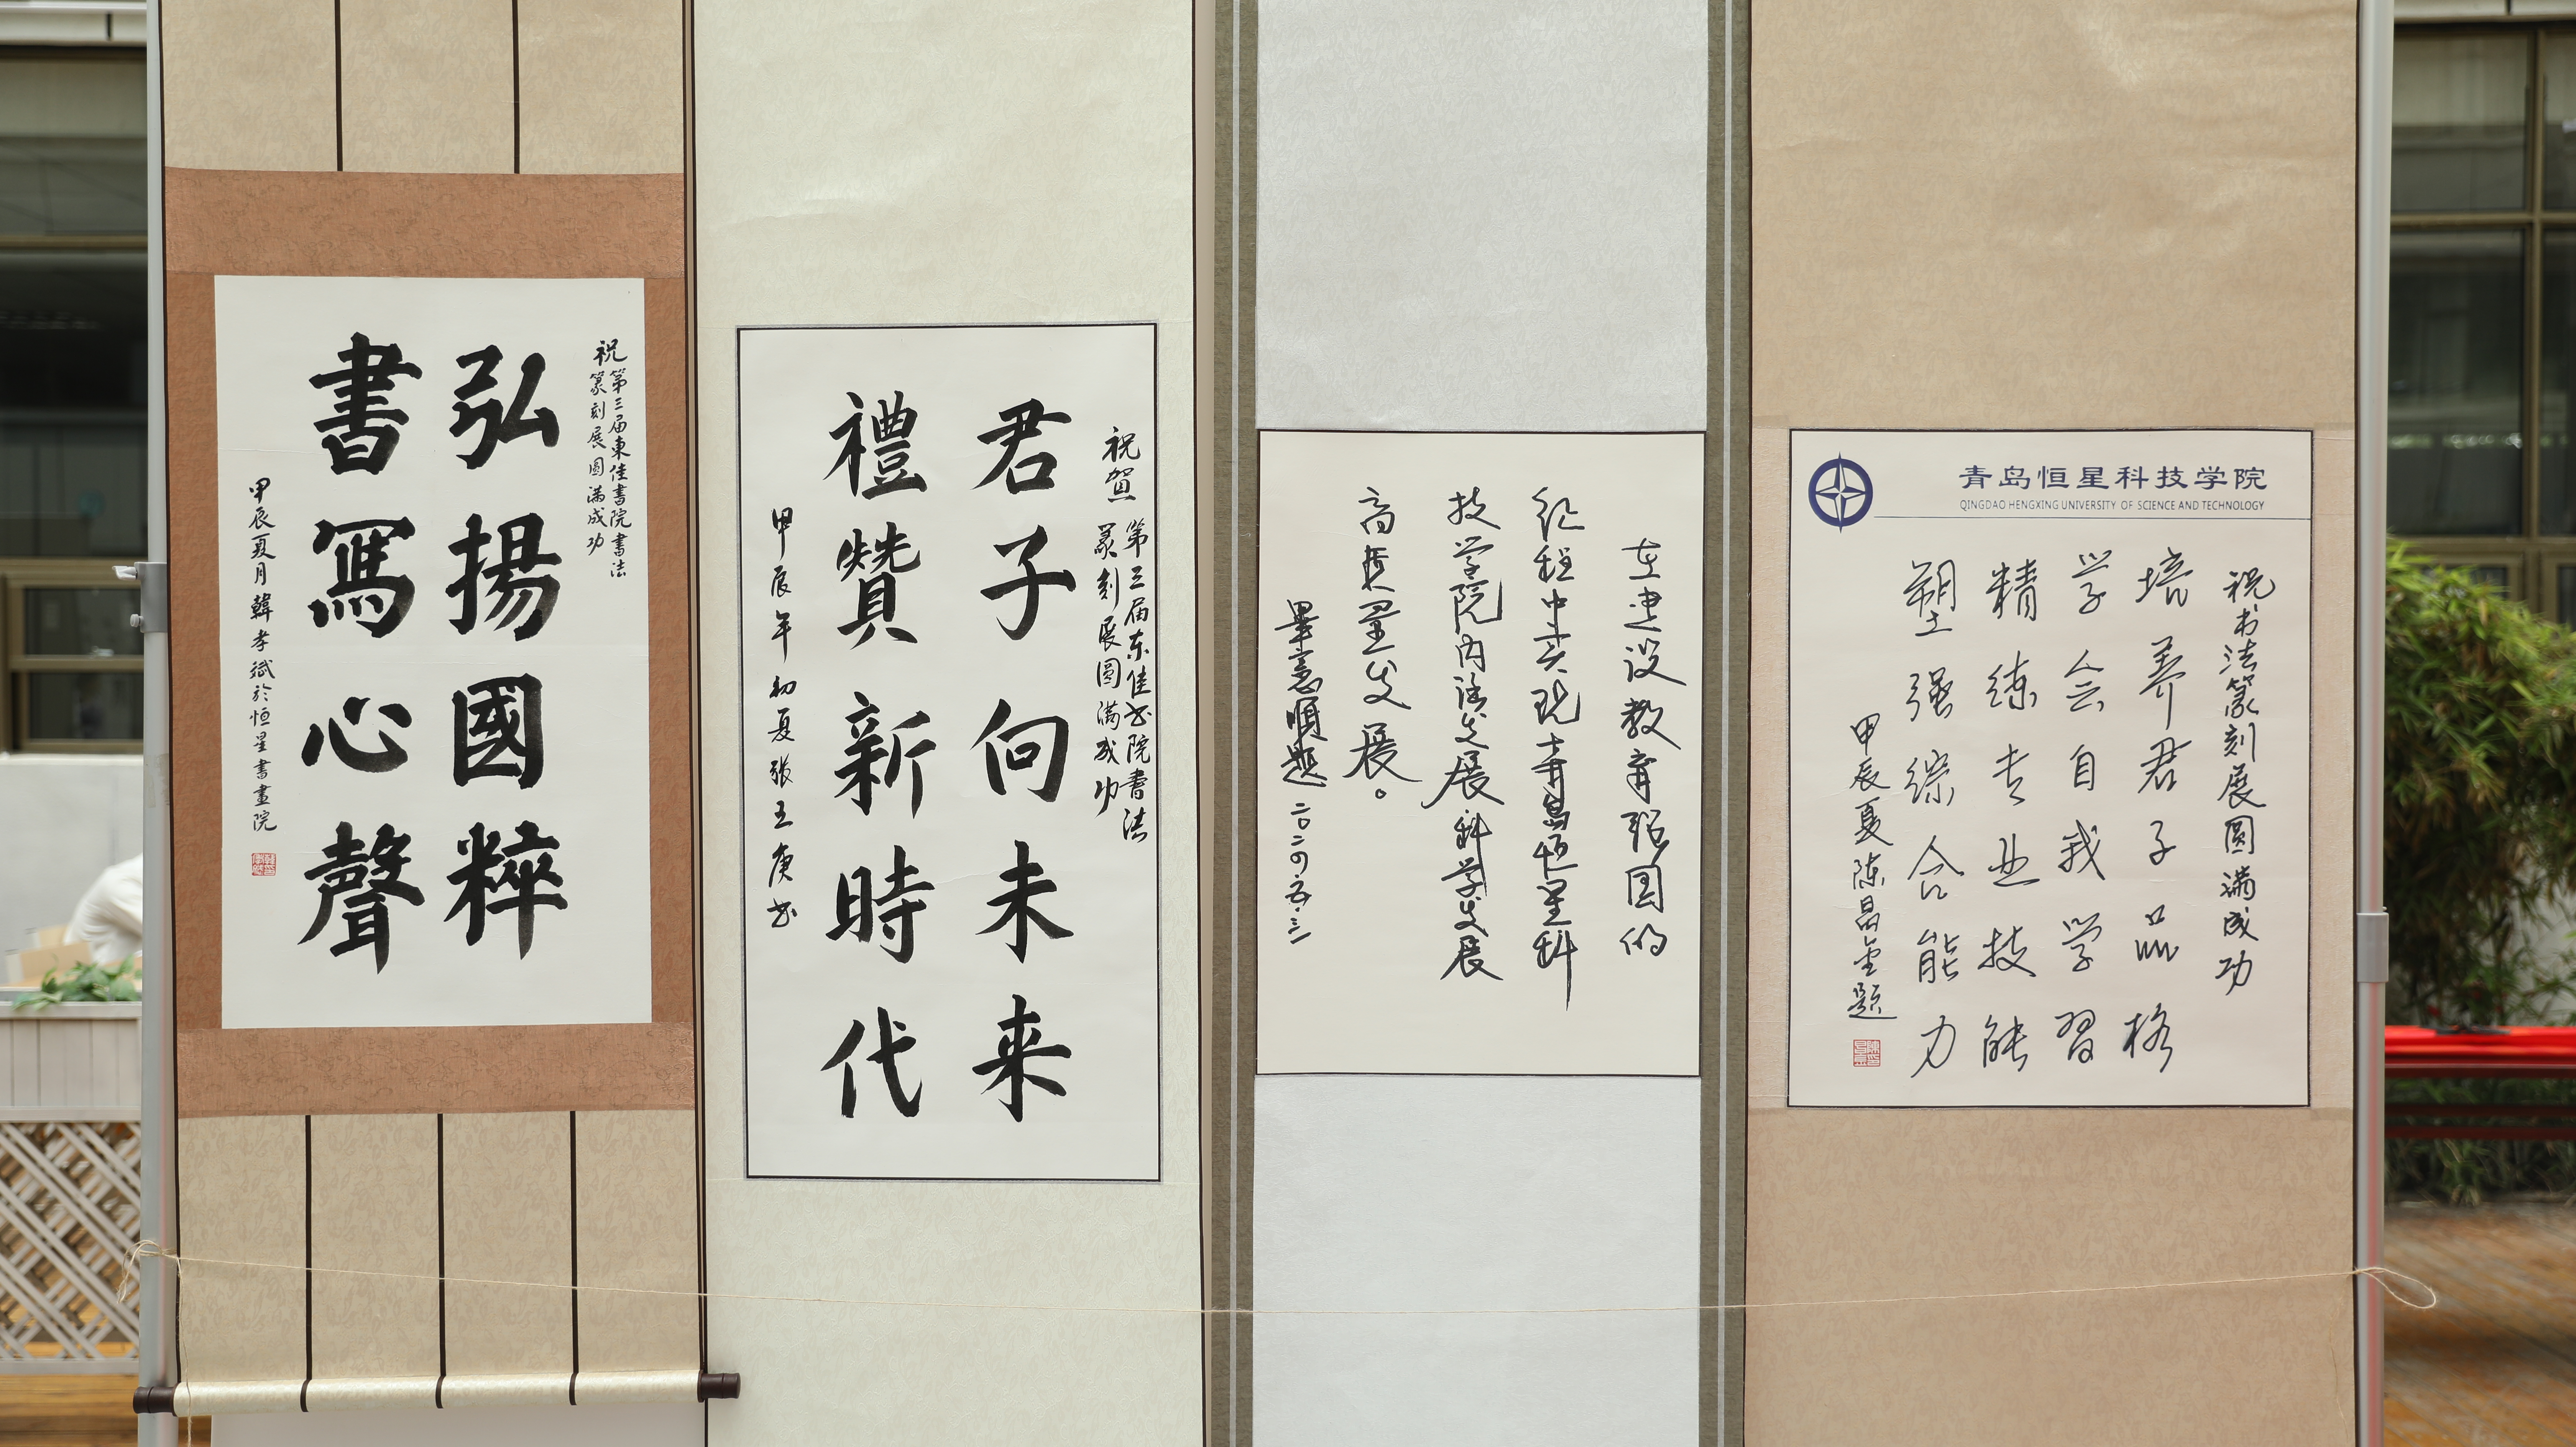 祝第三届東佳書院書法
篆刻展圓满成功
弘揚國粹
書寫心聲
甲辰夏月韓孝斌於恒星書畫院
祝贺
第三届东佳书院書法
篆刻展圆满成功
君子向未来
禮赞新時代
甲辰年初夏張玉庚书
在建设教育强国的
征程中实现青岛恒星科
技学院内涵发展科学发展
高质量发展。
畢憲順题 二〇二四.五.三一
青岛恒星科技学院
QINGDAO HENGXING UNIVERSITY OF SCIENCE AND TECHNOLOGY
祝书法篆刻展圆满成功
培养君子品格
学会自我学习
精练专业技能
塑强综合能力
甲辰夏陈昌金题